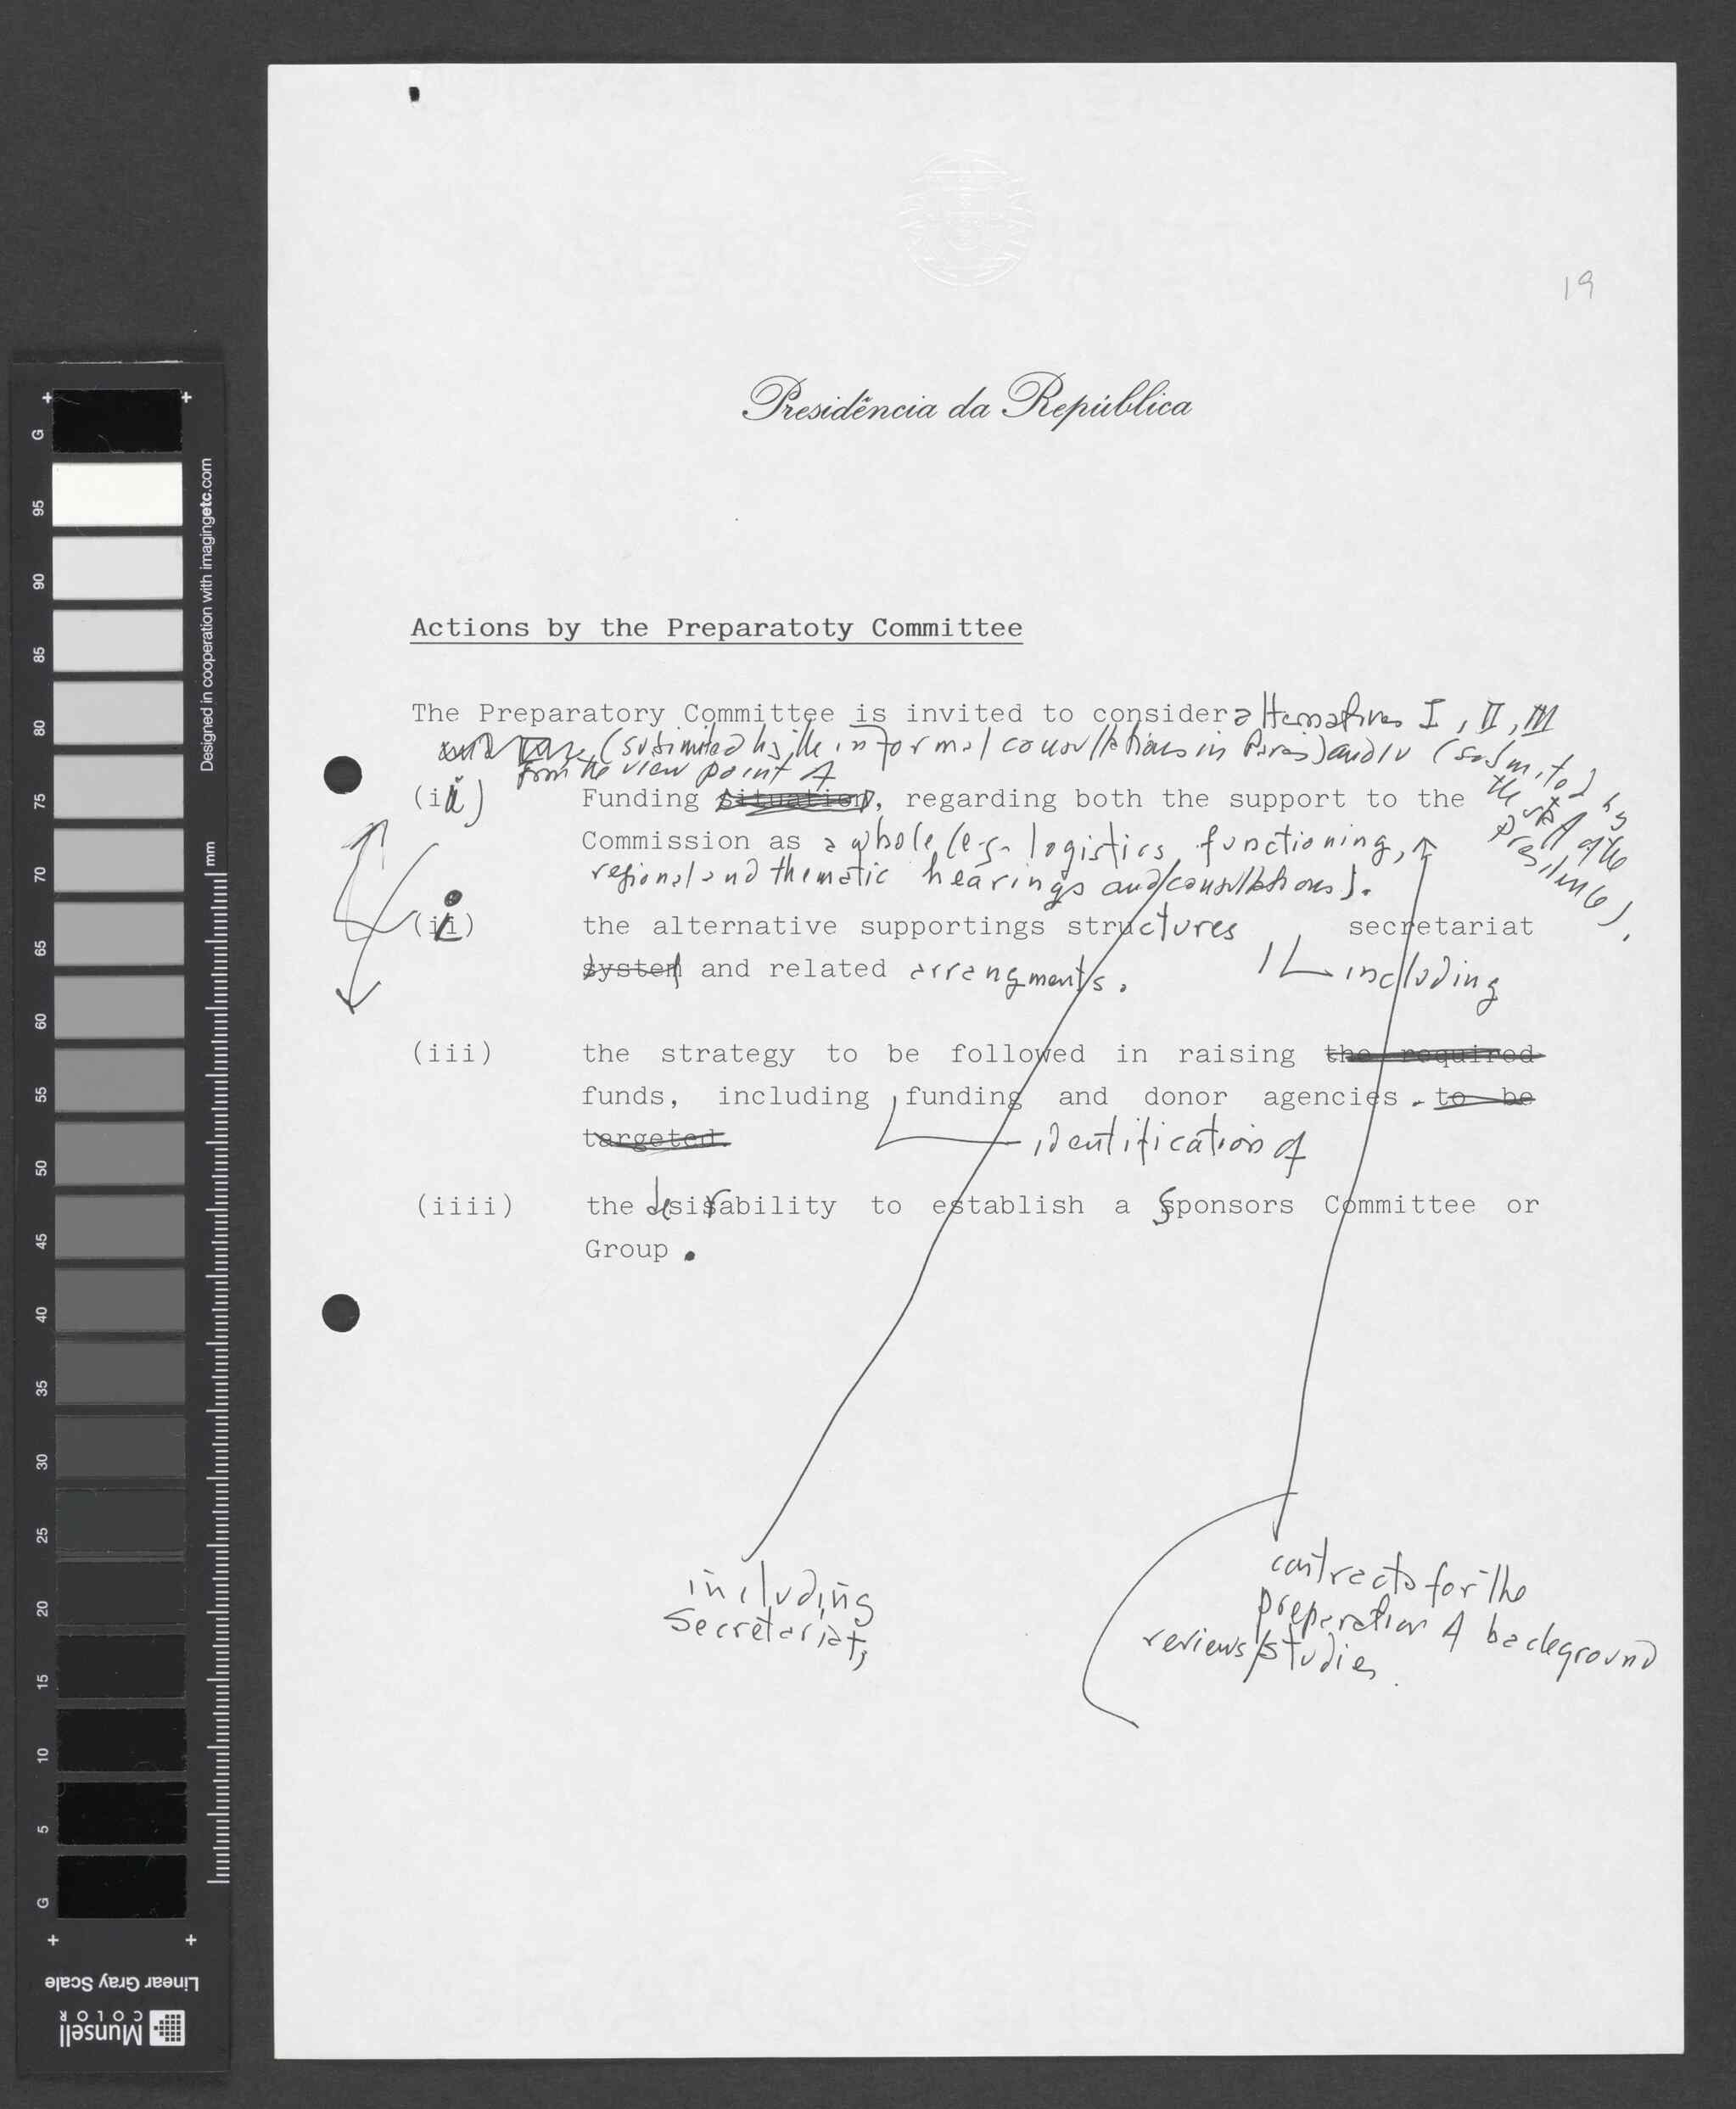 19
Presidência da República
Actions by the Preparatoty Committee
The Preparatory Committee is invited to consider alternatives I, II, III
(submited by the informal consultations in Paris) and IV (submited by
the staff of the
Presidence).
from the view point of
(ii) Funding situation, regarding both the support to the
Commission as a whole (e.g. logistics, functioning,
regional and thematic hearings and/consultations).
(i) the alternative supportings structures secretariat
system and related arrangments. including
(iii) the strategy to be followed in raising the required
funds, including funding and donor agencies. to be
targeted identification of
(iiii) the desirability to establish a Sponsors Committee or
Group.
including
secretariat,
contracts for the
preparation of background
reviews/studies.
G
95
90
85
80
75
70
65
60
55
50
45
40
35
30
25
20
15
10
5
G
Designed in cooperation with imagingetc.com
mm
Linear Gray Scale
Munsell
COLOR